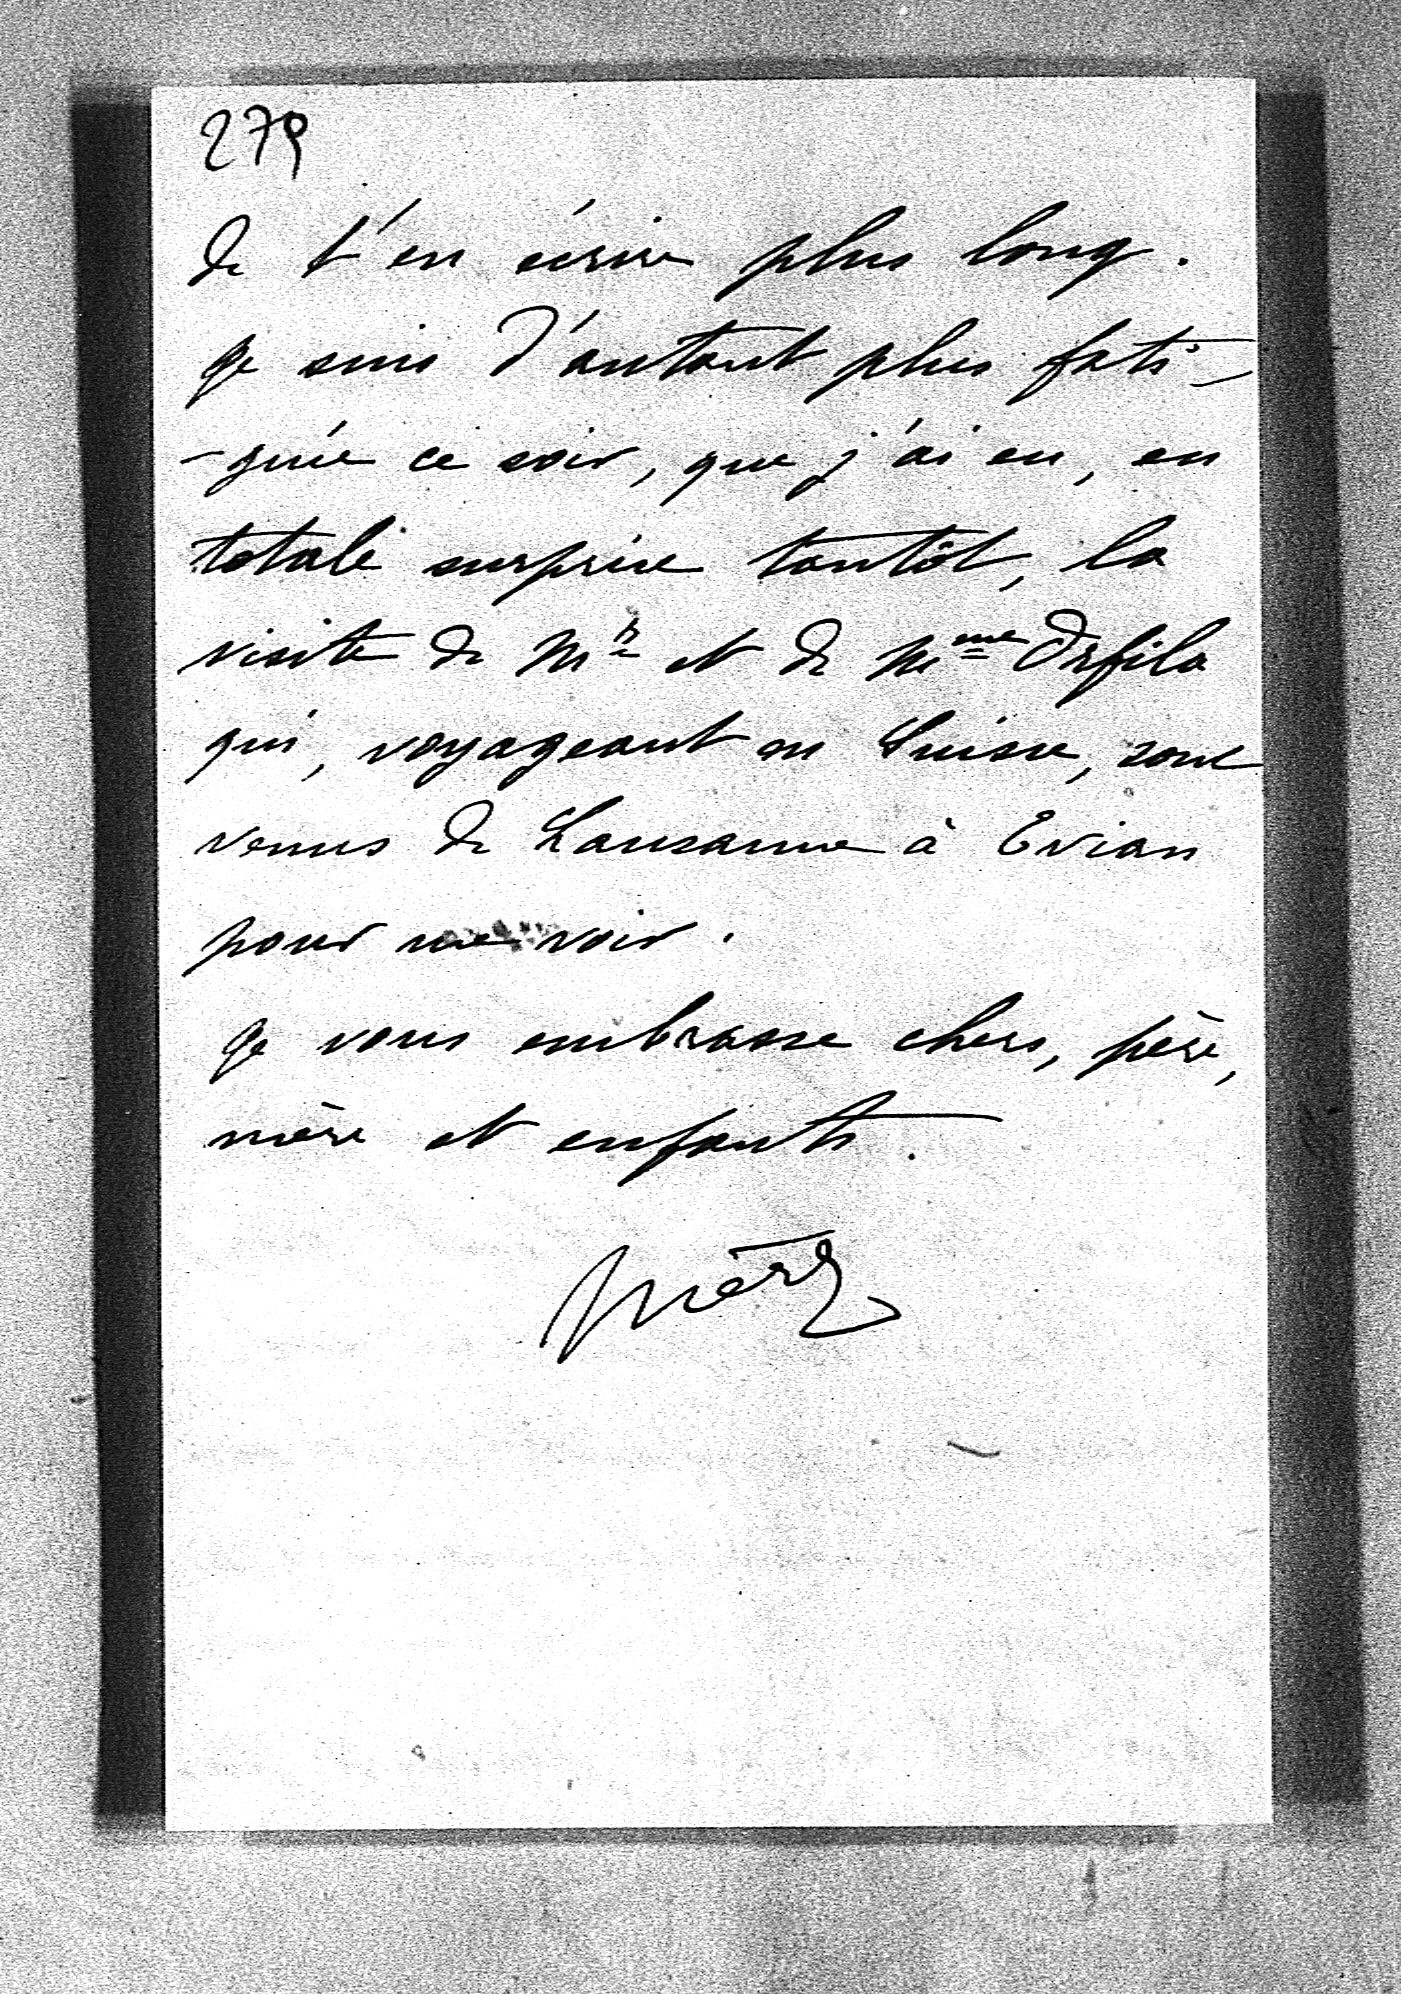 279
de t'en écrire plus long.
Je suis d'autant plus fati-
-guée ce soir, que j'ai eu, en
totale surprise tantôt, la
visite de Mr et de Mme Orfila
qui, voyageant en Suisse, sont
venus de Lausanne à Evian
pour me voir.
Je vous embrasse chers, père,
mère et enfants.
Mère